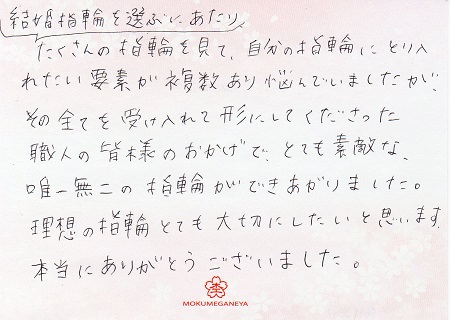 結婚指輪を選ぶにあたり
たくさんの指輪を見て、自分の指輪にとり入
れたい要素が複数あり悩んでいましたが、
その全てを受け入れて形にしてくださった
職人の皆様のおかげで、とても素敵な、
唯一無二の指輪ができあがりました。
理想の指輪とても大切にしたいと思います。
本当にありがとうございました。
MOKUMEGANEYA